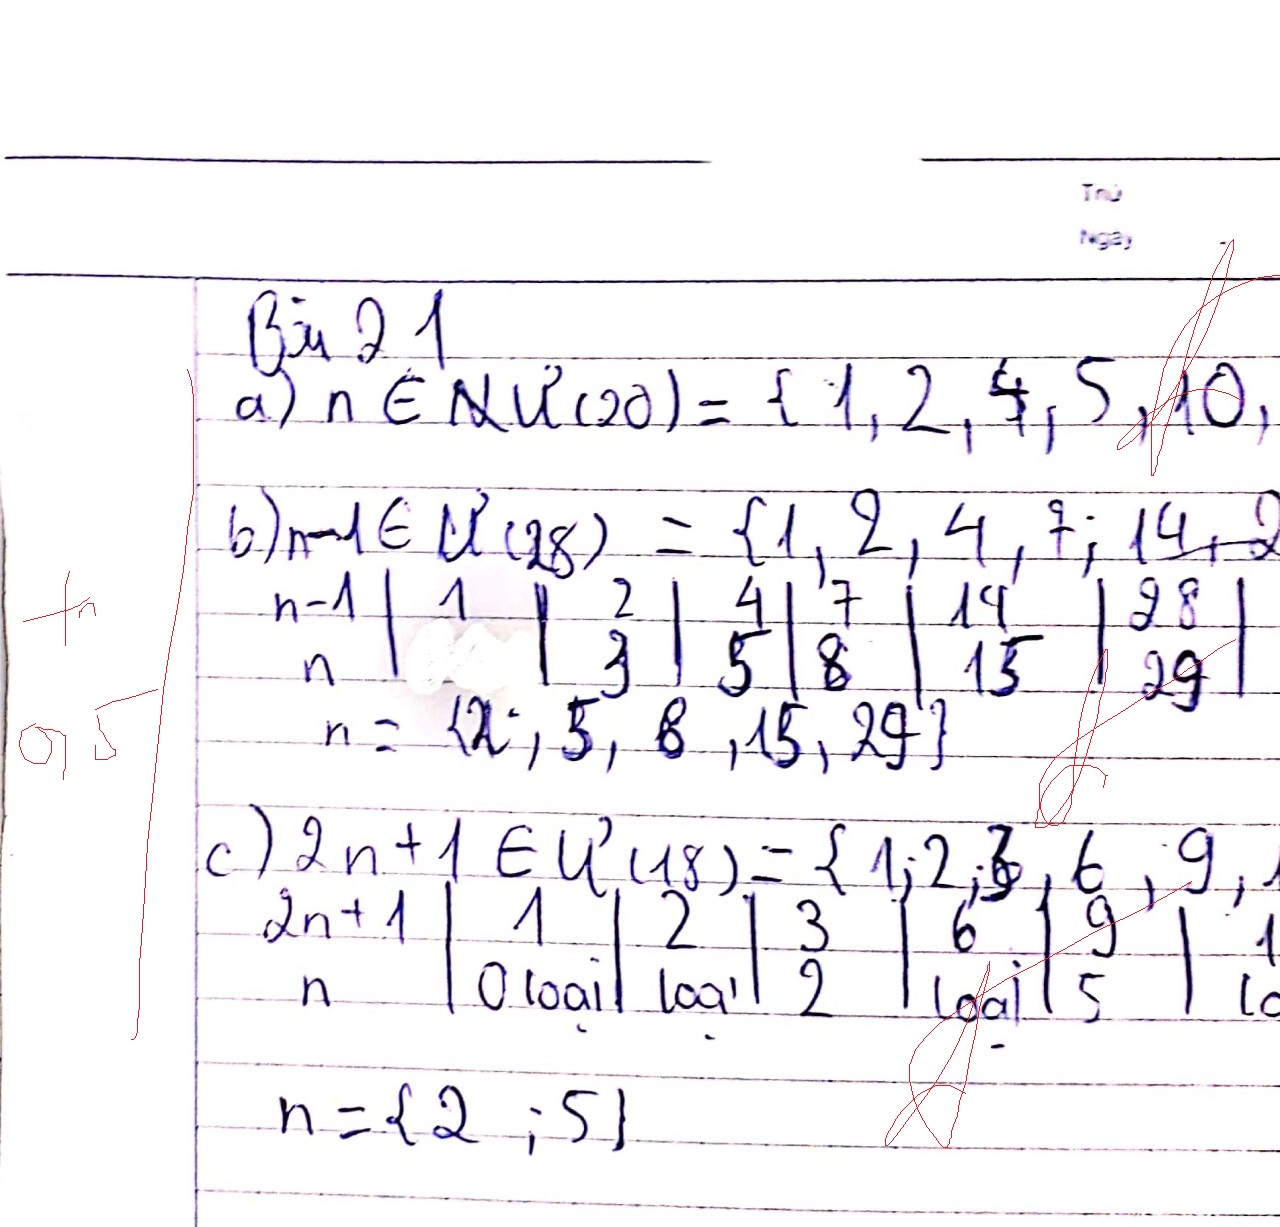 Thứ
Ngày
Bài 21
a) n ∈ N Ư(20) = { 1, 2, 4, 5, 10,
b) n-1 ∈ Ư(28) = {1, 2, 4, 7; 14, 2
n-1 | 1 | 2 | 4 | 7 | 14 | 28 |
n | | 3 | 5 | 8 | 15 | 29 |
n = {2; , 5, 8, 15, 29}
c) 2n+1 ∈ Ư(18) = { 1; 2; 3, 6, 9, 1
2n+1 | 1 | 2 | 3 | 6 | 9 | 1
n | 0 loại | loại | 2 | loại | 5 | lo
n = {2 ; 5}